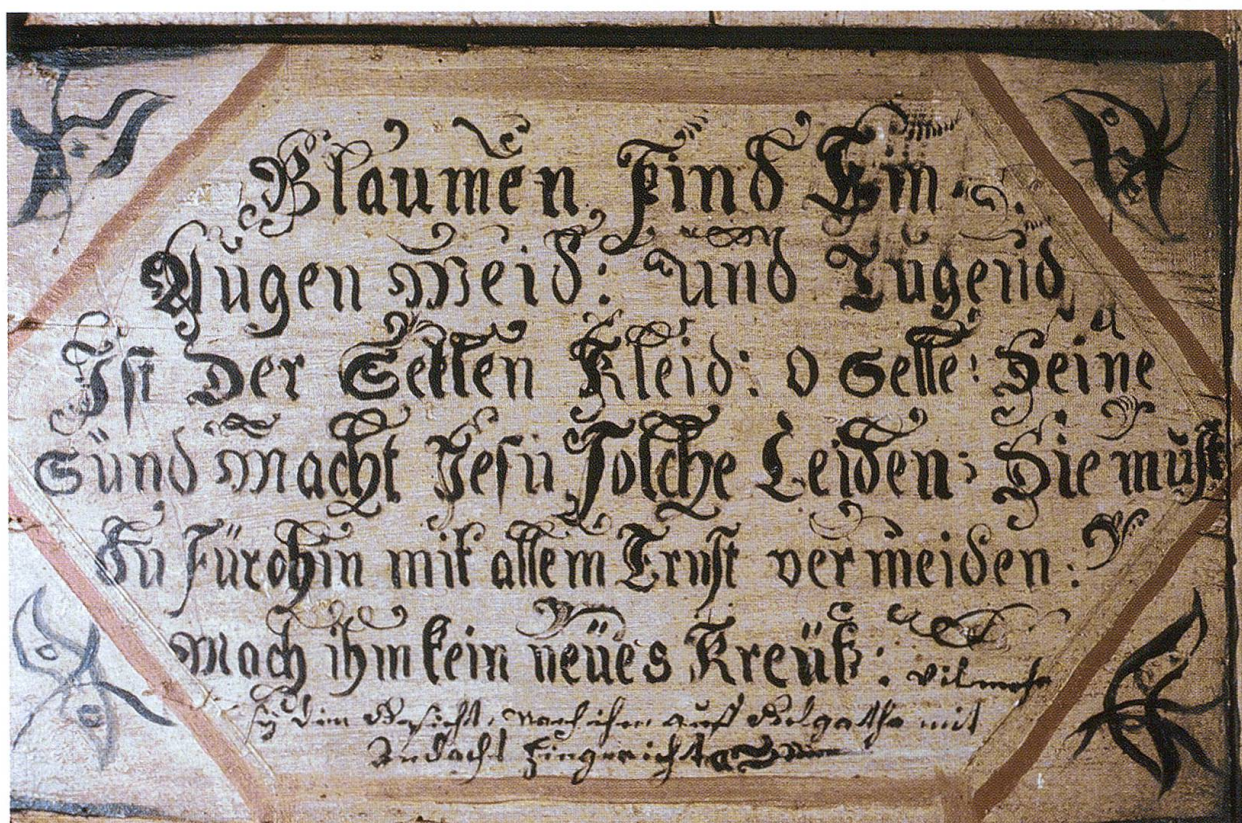 Blaumen Sind Ein
Augen Weid: und Tugend
Ist Der Sellen Kleid: O Selle: Deine
Sünd Macht Jesu Solche Leiden: Die must
Du Fürohin mit allem Ernst vermeiden:
Mach ihm kein neües Kreütz: vilmehr
sey dein Gesicht, nach ihm auff Golgatha mit
Andacht hingericht